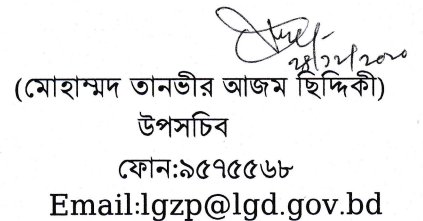 ২৪/১২/২০২০
(মোহাম্মদ তানভীর আজম ছিদ্দিকী)
উপসচিব
ফোন:৯৫৭৫৫৬৮
Email:lgzp@lgd.gov.bd